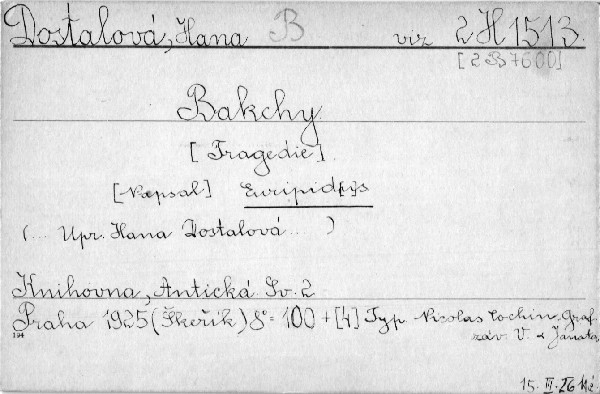 Dostalová, Hana B viz 2 H 1513.
[2 B 7600]
Bakchy.
[Tragedie].
[Napsal] Euripid[e]s
(... Upr. Hana Dostalová ... )
Knihovna, Antická Sv. 2
Praha 1925 (Škeřík) 8° = 100 + [4] Typ. Nicolas Cochin, Graf.
194 záv. V. & Janata.
15. VI. 26